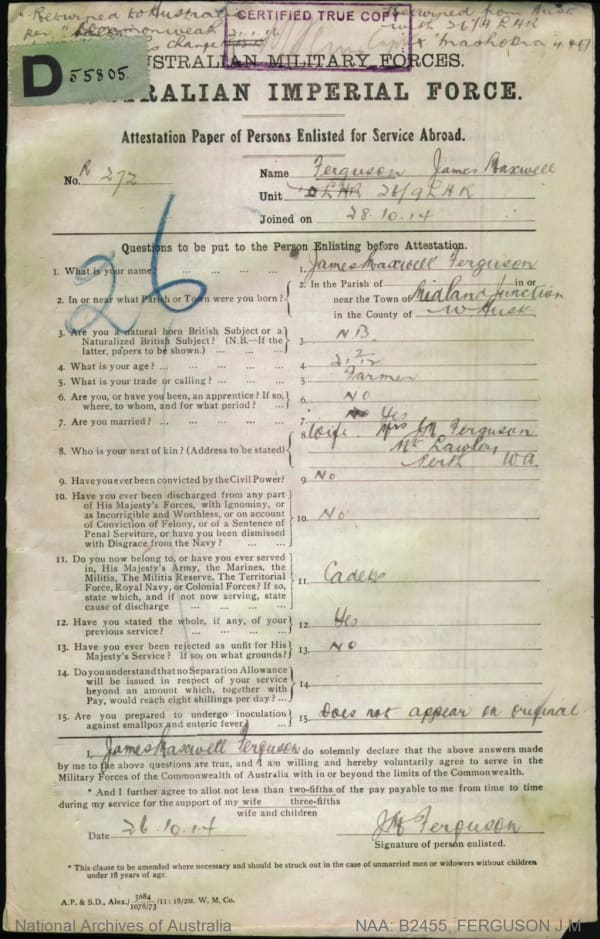 "Returned to Austral
per
CERTIFIED TRUE COPY
Returned from Aust
with 26/9 LHR
AUSTRALIAN MILITARY FORCES.
D 55805.
RALIAN IMPERIAL FORCE.
Attestation Paper of Persons Enlisted for Service Abroad.
No. R 272
Name Ferguson James Maxwell
Unit 26/9 LHR
Joined on 28.10.14
26
Questions to be put to the Person Enlisting before Attestation.
1. What is your name? ... ... ... ... 1. James Maxwell Ferguson
2. In or near what Parish or Town were you born? 2. In the Parish of in or
near the Town of Midland Junction
in the County of W Aust
3. Are you a natural born British Subject or a
Naturalized British Subject? (N.B.—If the
latter, papers to be shown.) ... ... 3. N.B.
4. What is your age? ... ... ... ... 4.
5. What is your trade or calling? ... ... ... 5. Farmer
6. Are you, or have you been, an apprentice? If so,
where, to whom, and for what period? ... 6. No
7. Are you married? ... ... ... ... 7. No Yes
8. Who is your next of kin? (Address to be stated) 8. Wife. Mrs J M Ferguson
Mt Lawley
Perth WA
9. Have you ever been convicted by the Civil Power? 9. No
10. Have you ever been discharged from any part
of His Majesty's Forces, with Ignominy, or
as Incorrigible and Worthless, or on account
of Conviction of Felony, or of a Sentence of
Penal Serviture, or have you been dismissed
with Disgrace from the Navy? ... ... 10. No
11. Do you now belong to, or have you ever served
in, His Majesty's Army, the Marines, the
Militia, The Militia Reserve, The Territorial
Force, Royal Navy, or Colonial Forces? If so,
state which, and if not now serving, state
cause of discharge ... ... ... ... 11. Cadets
12. Have you stated the whole, if any, of your
previous service? ... ... ... ... 12. Yes
13. Have you ever been rejected as unfit for His
Majesty's Service? If so, on what grounds? 13. No
14. Do you understand that no Separation Allowance
will be issued in respect of your service
beyond an amount which, together with
Pay, would reach eight shillings per day? ... 14.
15. Are you prepared to undergo inoculation
against smallpox and enteric fever? 15. Does not appear on original
I, James Maxwell Ferguson do solemnly declare that the above answers made
by me to the above questions are true, and I am willing and hereby voluntarily agree to serve in the
Military Forces of the Commonwealth of Australia with in or beyond the limits of the Commonwealth.
* And I further agree to allot not less than two-fifths of the pay payable to me from time to time
three-fifths
during my service for the support of my wife
wife and children
Date 26.10.14
J M Ferguson
Signature of person enlisted.
* This clause to be amended where necessary and should be struck out in the case of unmarried men or widowers without children
under 18 years of age.
A.P. & S.D., Alex./5684 1078/73/11: 18/2M. W. M. Co.
National Archives of Australia
NAA: B2455, FERGUSON J M